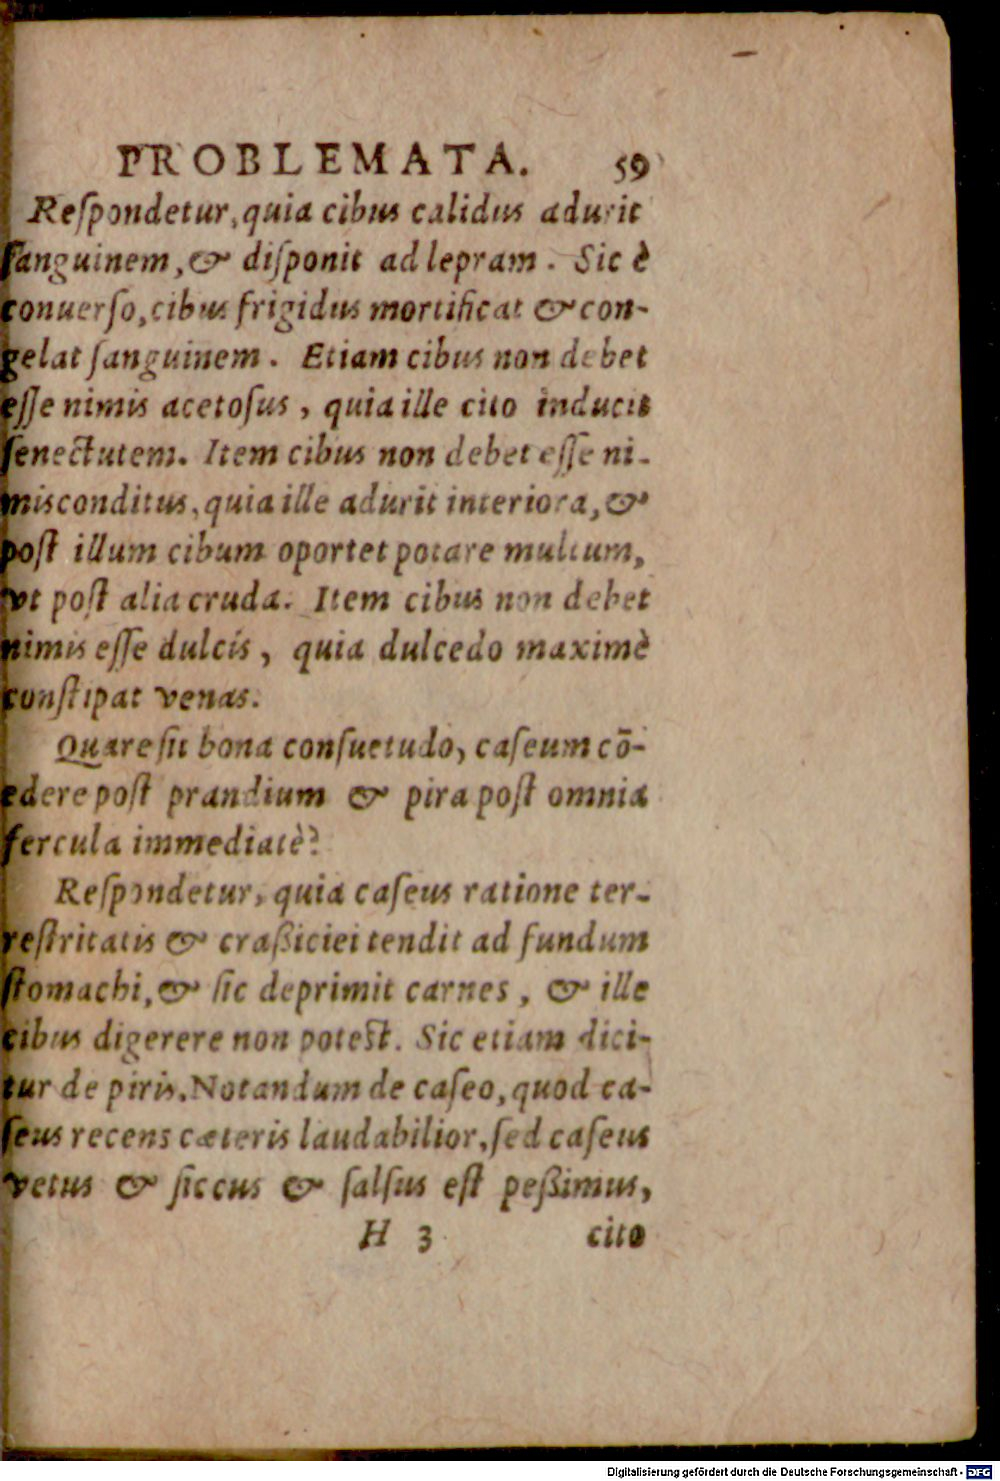 PROBLEMATA. 59
Reſpondetur, quia cibus calidus adurit
ſanguinem, & diſponit ad lepram. Sic è
conuerſo, cibus frigidus mortificat & con-
gelat ſanguinem. Etiam cibus non debet
eſſe nimis acetoſus, quia ille cito inducit
ſenectutem. Item cibus non debet eſſe ni-
mis conditus, quia ille adurit interiora, &
poſt illum cibum oportet potare multum,
vt poſt alia cruda. Item cibus non debet
nimis eſſe dulcis, quia dulcedo maximè
conſtipat venas.
Quare ſit bona conſuetudo, caſeum cō-
edere poſt prandium & pira poſt omnia
fercula immediatè?
Reſpondetur, quia caſeus ratione ter-
reſtritatis & craßiciei tendit ad fundum
ſtomachi, & ſic deprimit carnes, & ille
cibus digerere non poteſt. Sic etiam dici-
tur de piris. Notandum de caſeo, quod ca-
ſeus recens cæteris laudabilior, ſed caſeus
vetus & ſiccus & ſalſus eſt peßimus,
H 3 cito
Digitalisierung gefördert durch die Deutsche Forschungsgemeinschaft - DFG